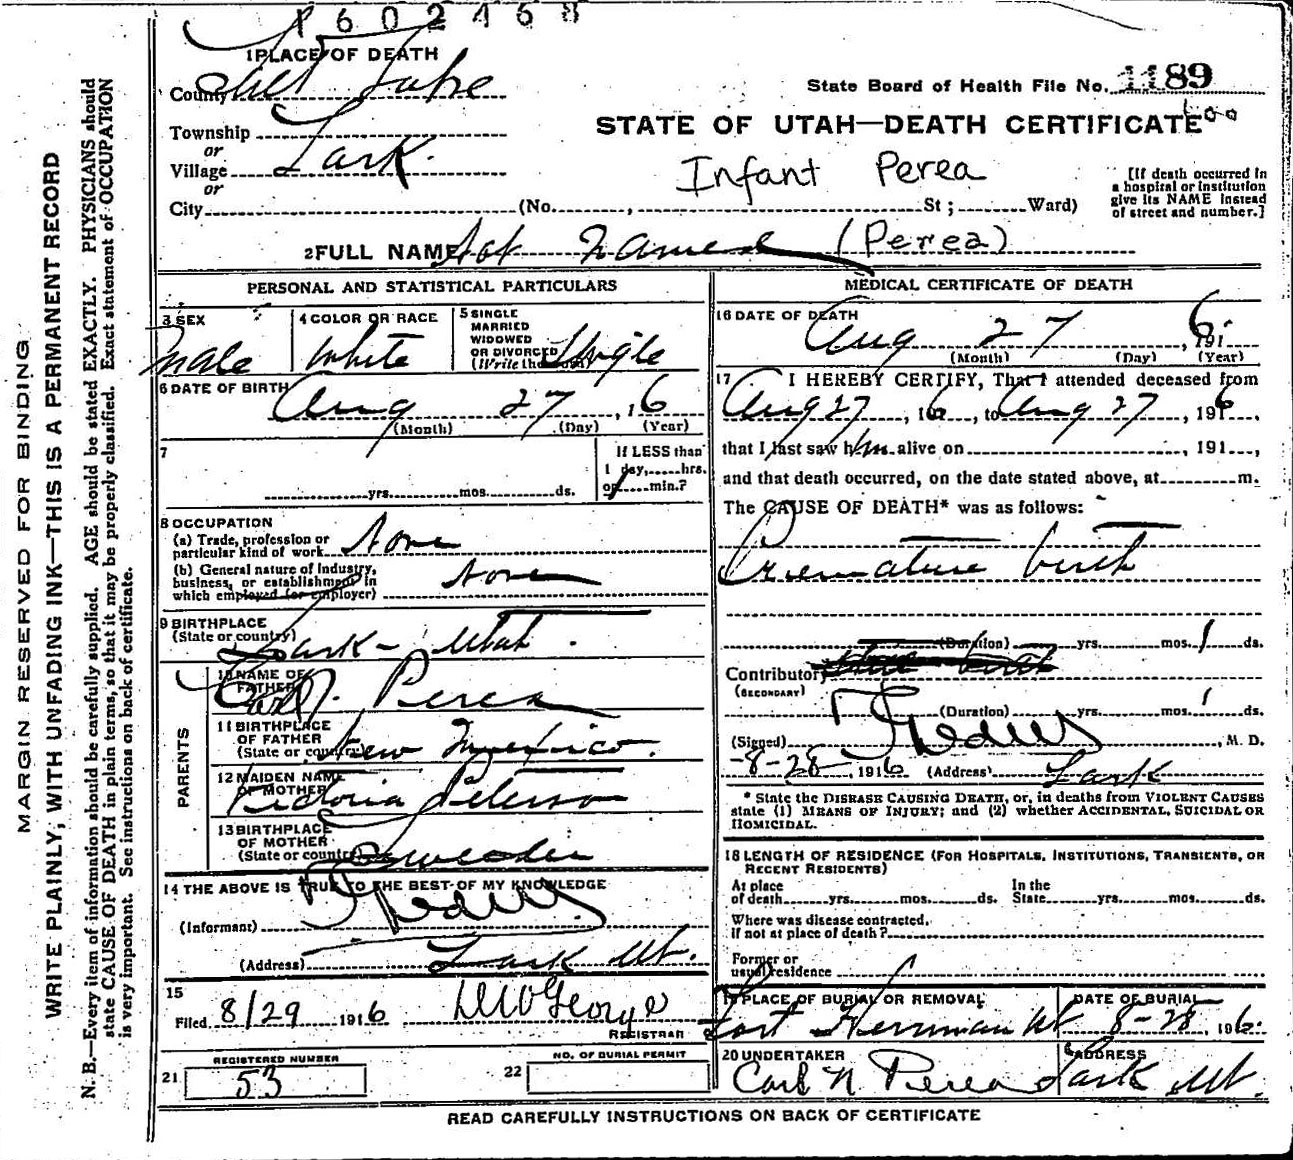 1602468
1 PLACE OF DEATH
County Salt Lake
State Board of Health File No. 1189
600
STATE OF UTAH—DEATH CERTIFICATE
Township
or
Village Lark.
or
City (No. , St ; Ward)
Infant Perea
[If death occurred in
a hospital or institution
give its NAME instead
of street and number.]
2 FULL NAME Not Named (Perea)
PERSONAL AND STATISTICAL PARTICULARS
3 SEX
Male
4 COLOR OR RACE
White
5 SINGLE
MARRIED
WIDOWED
OR DIVORCED
(Write the word)
Single
6 DATE OF BIRTH
Aug 27, 16
(Month) (Day) (Year)
7
yrs. mos. ds.
If LESS than
1 day, hrs.
or min.?
8 OCCUPATION
(a) Trade, profession or
particular kind of work None
(b) General nature of industry,
business, or establishment in
which employed (or employer) None
9 BIRTHPLACE
(State or country)
Lark - Utah.
PARENTS
10 NAME OF
FATHER
Carl N. Perea
11 BIRTHPLACE
OF FATHER
(State or country) New Mexico.
12 MAIDEN NAME
OF MOTHER
Victoria Peterson
13 BIRTHPLACE
OF MOTHER
(State or country) Sweden
14 THE ABOVE IS TRUE TO THE BEST OF MY KNOWLEDGE
(Informant)
(Address) Lark Ut.
15
Filed 8/29 1916
George
REGISTRAR
REGISTERED NUMBER
21 53
NO. OF BURIAL PERMIT
22
MEDICAL CERTIFICATE OF DEATH
16 DATE OF DEATH
Aug 27 1916.
(Month) (Day) (Year)
17 I HEREBY CERTIFY, That I attended deceased from
Aug 27, 16, to Aug 27, 1916,
that I last saw him alive on , 191 ,
and that death occurred, on the date stated above, at m.
The CAUSE OF DEATH* was as follows:
Premature birth
(Duration) yrs. mos. 1 ds.
Contributory
(SECONDARY)
(Duration) yrs. mos. 1 ds.
(Signed) , M. D.
8-28, 1916 (Address) Lark
* State the DISEASE CAUSING DEATH, or, in deaths from VIOLENT CAUSES
state (1) MEANS OF INJURY; and (2) whether ACCIDENTAL, SUICIDAL OR
HOMICIDAL.
18 LENGTH OF RESIDENCE (FOR HOSPITALS, INSTITUTIONS, TRANSIENTS, OR
RECENT RESIDENTS)
At place
of death yrs. mos. ds.
In the
State yrs. mos. ds.
Where was disease contracted,
if not at place of death?
Former or
usual residence
19 PLACE OF BURIAL OR REMOVAL
Fort Herriman Ut
DATE OF BURIAL
8-28, 1916.
20 UNDERTAKER
Carl N Perea
ADDRESS
Lark Ut.
READ CAREFULLY INSTRUCTIONS ON BACK OF CERTIFICATE
MARGIN RESERVED FOR BINDING
WRITE PLAINLY, WITH UNFADING INK—THIS IS A PERMANENT RECORD
N. B.—Every item of information should be carefully supplied. AGE should be stated EXACTLY. PHYSICIANS should
state CAUSE OF DEATH in plain terms, so that it may be properly classified. Exact statement of OCCUPATION
is very important. See instructions on back of certificate.